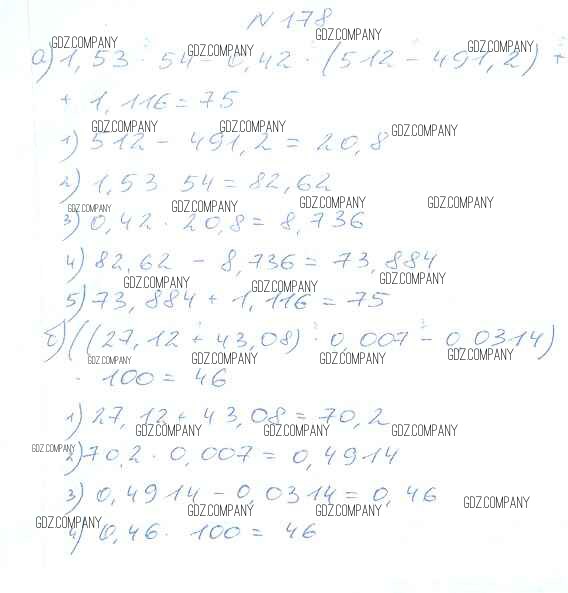 N 178
а) 1,53 · 54 - 0,42 · (512 - 491,2) +
+ 1,116 = 75
1) 512 - 491,2 = 20,8
2) 1,53 54 = 82,62
3) 0,42 · 20,8 = 8,736
4) 82,62 - 8,736 = 73,884
5) 73,884 + 1,116 = 75
б) ((27,12 + 43,08) · 0,007 - 0,0314)
· 100 = 46
1) 27,12 + 43,08 = 70,2
2) 70,2 · 0,007 = 0,4914
3) 0,4914 - 0,0314 = 0,46
4) 0,46 · 100 = 46
GDZ.COMPANY GDZ.COMPANY GDZ.COMPANY GDZ.COMPANY
GDZ.COMPANY GDZ.COMPANY GDZ.COMPANY
GDZ.COMPANY GDZ.COMPANY GDZ.COMPANY GDZ.COMPANY
GDZ.COMPANY GDZ.COMPANY GDZ.COMPANY
GDZ.COMPANY GDZ.COMPANY GDZ.COMPANY GDZ.COMPANY
GDZ.COMPANY GDZ.COMPANY GDZ.COMPANY
GDZ.COMPANY
GDZ.COMPANY GDZ.COMPANY GDZ.COMPANY
GDZ.COMPANY